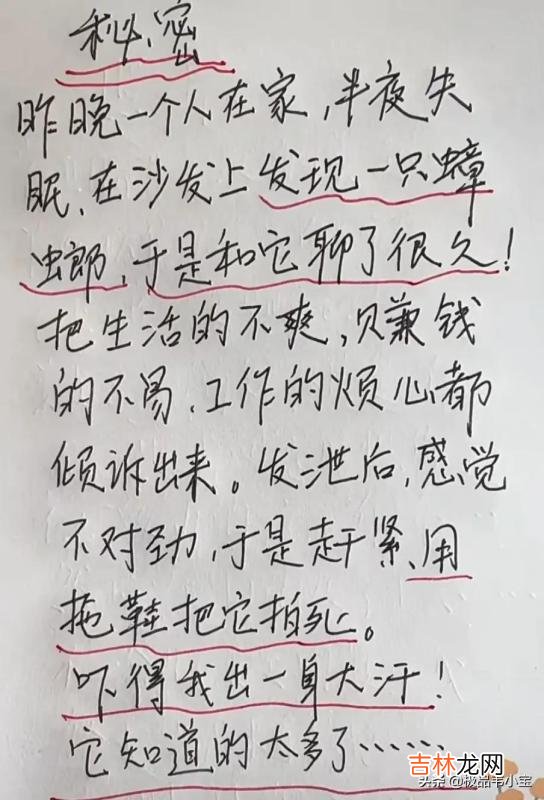 秘密
昨晚一个人在家，半夜失
眠，在沙发上发现一只蟑
螂，于是和它聊了很久！
把生活的不爽，赚钱
的不易，工作的烦心都
倾诉出来。发泄后，感觉
不对劲，于是赶紧，用
拖鞋把它拍死。
吓得我出一身大汗！
它知道的太多了……
吉林龙网
头条 @极品韦小宝